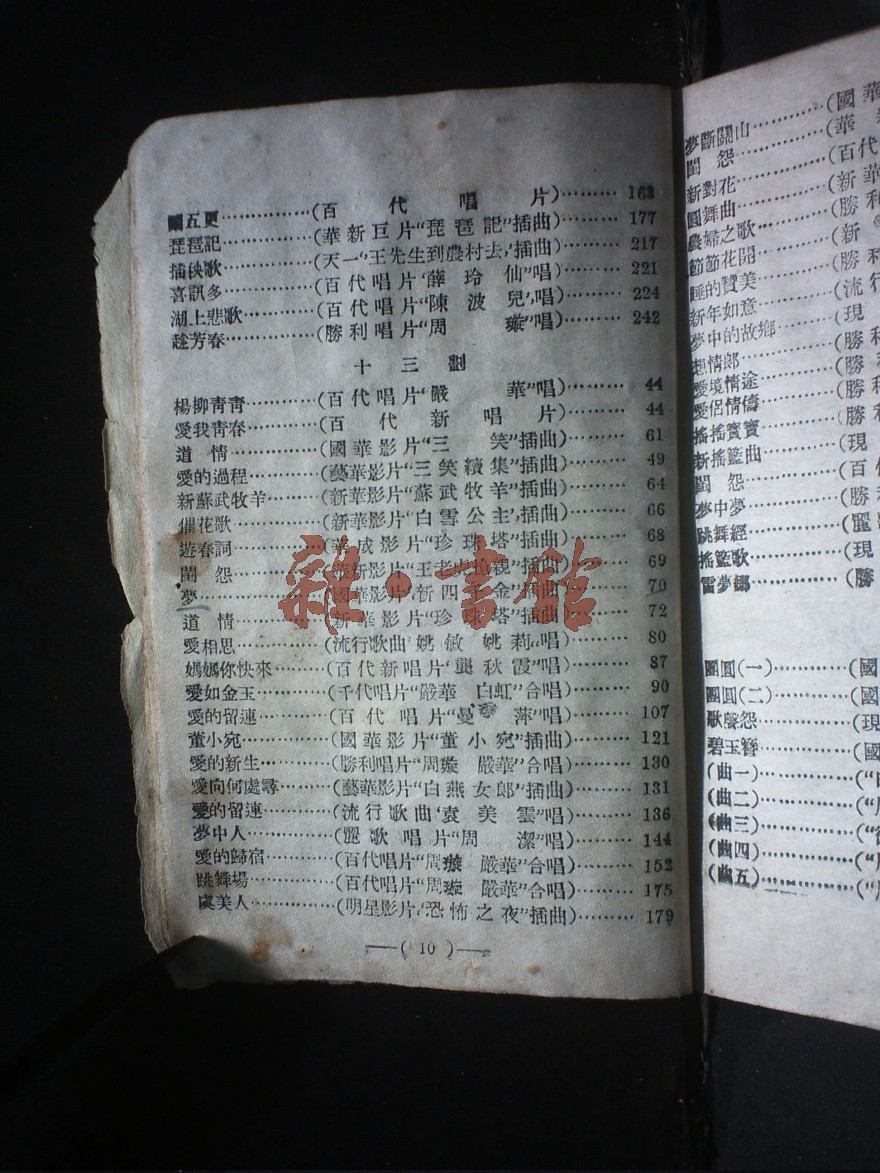 五更……………(百代唱片)………163
琵琶記…………(華新巨片“琵琶記”插曲)……177
插秧歌…………(天一“王先生到農村去”插曲)……217
喜訊多…………(百代唱片“薛玲仙”唱)………221
湖上悲歌………(百代唱片“陳波兒”唱)………224
趁芳春…………(勝利唱片“周璇”唱)………242
十三劃
楊柳靑靑………(百代唱片“嚴華”唱)………44
愛我靑春………(百代新唱片)………44
道情……………(國華影片“三笑”插曲)………61
愛的過程………(藝華影片“三笑續集”插曲)………49
新蘇武牧羊……(新華影片“蘇武牧羊”插曲)………64
催花歌…………(新華影片“白雪公主”插曲)………66
遊春詞…………(華成影片“珍珠塔”插曲)………68
閨怨……………(華新影片“王老虎搶親”插曲)………69
夢………………(國華影片“新四千金”插曲)………70
道情……………(新華影片“珍珠塔”插曲)………72
愛相思…………(流行歌曲“姚敏 姚莉”唱)………80
媽媽你快來……(百代新唱片“龔秋霞”唱)………87
愛如金玉………(千代唱片“嚴華 白虹”合唱)………90
愛的留連………(百代唱片“曼萍”唱)………107
董小宛…………(國華影片“董小宛”插曲)………121
愛的新生………(勝利唱片“周璇 嚴華”合唱)………130
愛向何處尋……(藝華影片“白燕女郎”插曲)………131
愛的留連………(流行歌曲“袁美雲”唱)………136
夢中人…………(麗歌唱片“周潔”唱)………144
愛的歸宿………(百代唱片“周璇 嚴華”合唱)………152
跳舞場…………(百代唱片“周璇 嚴華”合唱)………175
虞美人…………(明星影片“恐怖之夜”插曲)………179
—(10)—
夢斷關山…………(國華
閨怨……………(華新
新對花…………(百代
圓舞曲…………(新華
農婦之歌………(勝利
節節花開………(新
睡的贊美………(勝利
新年如意………(流行
夢中的故鄉……(現
想情郎…………(勝
愛境情途………(勝利
愛侶情儔………(勝利
搖搖寶寶………(勝利
新搖籃曲………(現
閨怨……………(百代
夢中夢…………(勝利
跳舞經…………(麗歌
搖籃歌…………(現
雷夢娜…………(勝
團圓(一)…………(國
團圓(二)…………(國
歌聲怨…………(現
碧玉簪…………(國
(曲一)…………(“
(曲二)…………(“
(曲三)…………(“
(曲四)…………(“
(曲五)…………(“
雜·書館